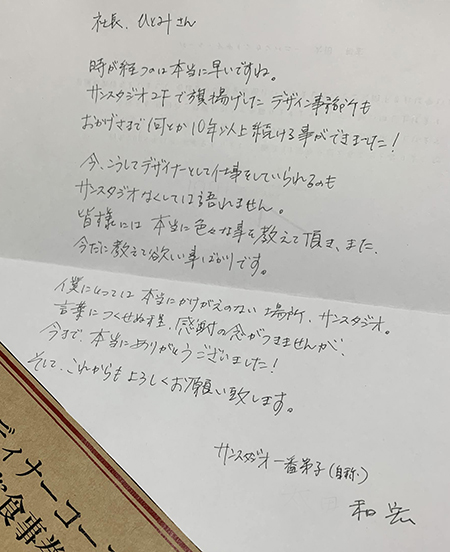 社長、ひとみさん
時が経つのは本当に早いですね。
サンスタジオ2Fで旗揚げしたデザイン事務所も
おかげさまで何とか10年以上続ける事ができました!
今、こうしてデザイナーとして仕事をしていられるのも
サンスタジオなくしては語れません。
皆様には本当に色々な事を教えて頂き、また、
今だに教えて欲しい事ばかりです。
僕にとっては本当にかけがえのない場所、サンスタジオ。
言葉につくせぬ程、感謝の念がつきませんが、
今まで、本当にありがとうございました!
そして、これからもよろしくお願い致します。
サンスタジオ一番弟子(自称)
和宏
ディナーコー
食事券